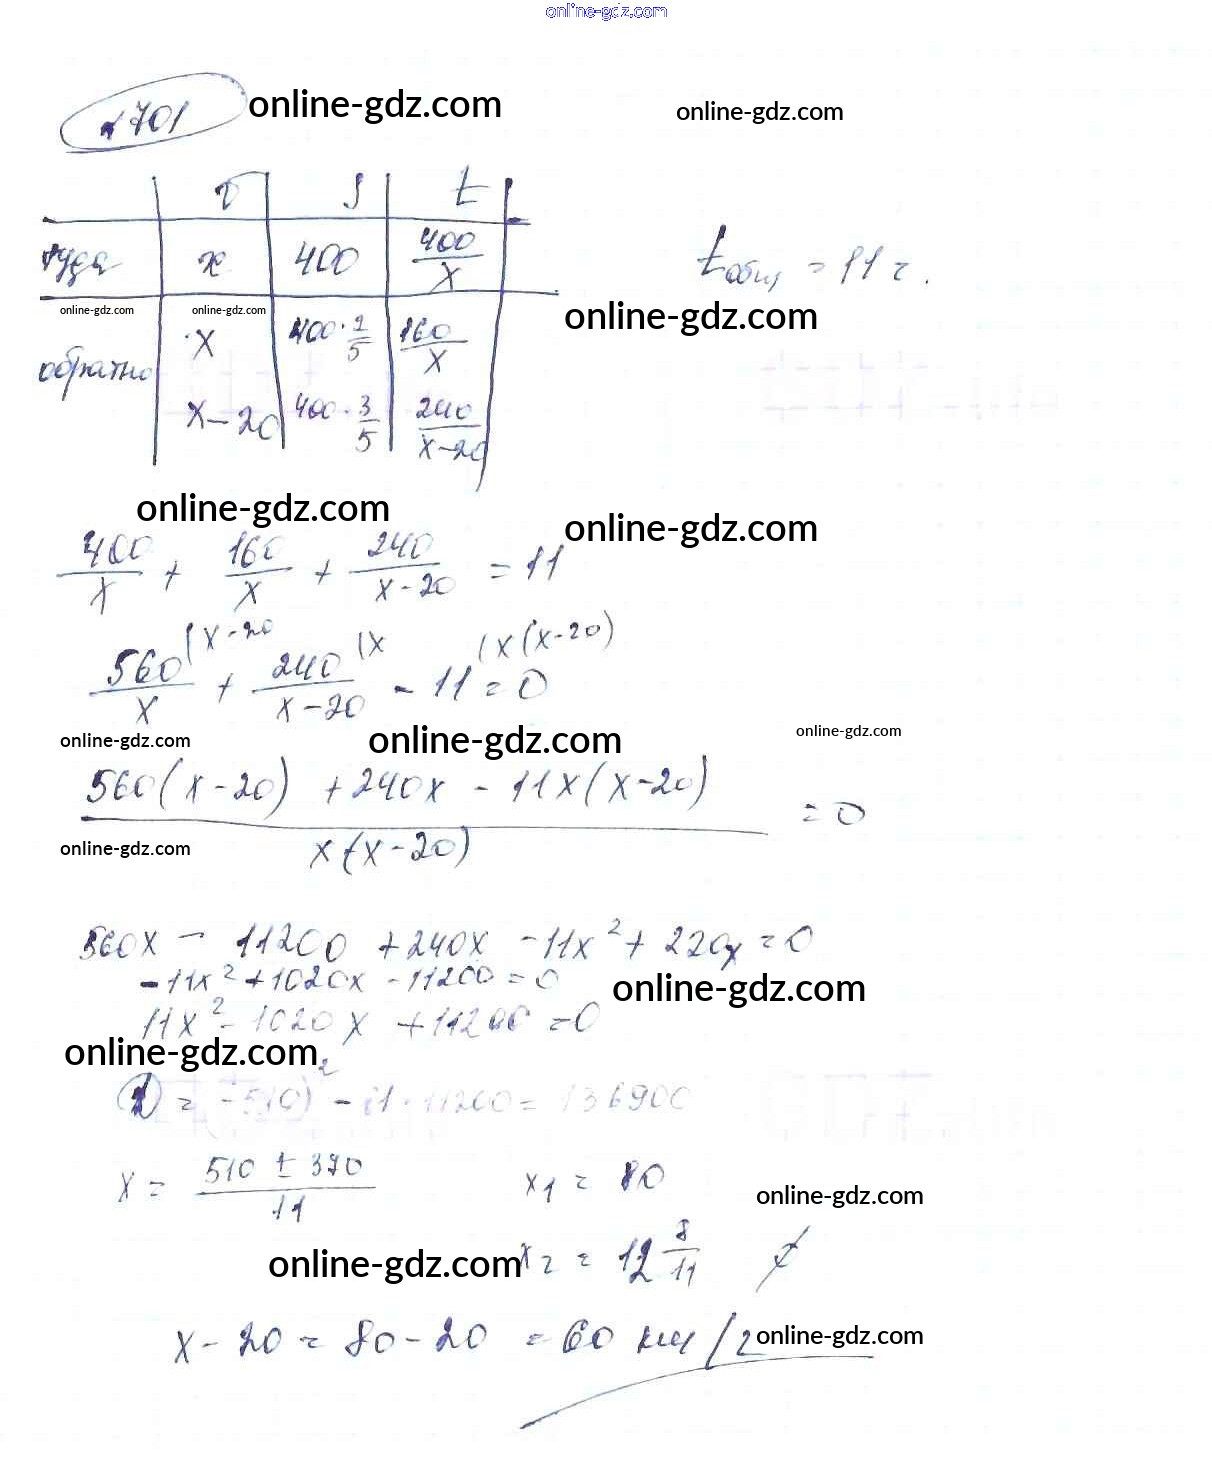 online-gdz.com
№701 online-gdz.com online-gdz.com
v S t
туда x 400 400/x tобщ = 11 ч.
online-gdz.com online-gdz.com online-gdz.com
обратно x 400·2/5 160/x
x-20 400·3/5 240/x-20
online-gdz.com online-gdz.com
400/x + 160/x + 240/x-20 = 11
560/x (x-20 + 240/x-20 (x - 11 = 0 (x(x-20)
online-gdz.com online-gdz.com online-gdz.com
560(x-20) + 240x - 11x(x-20) / x(x-20) = 0
online-gdz.com
560x - 11200 + 240x - 11x² + 220x = 0
-11x² + 1020x - 11200 = 0
online-gdz.com
11x² - 1020x + 11200 = 0
online-gdz.com
D = (-510)² - 11·11200 = 136900
x = 510 ± 370 / 11 x1 = 80
online-gdz.com
online-gdz.com x2 = 12 8/11
x - 20 = 80 - 20 = 60 км/ч
online-gdz.com